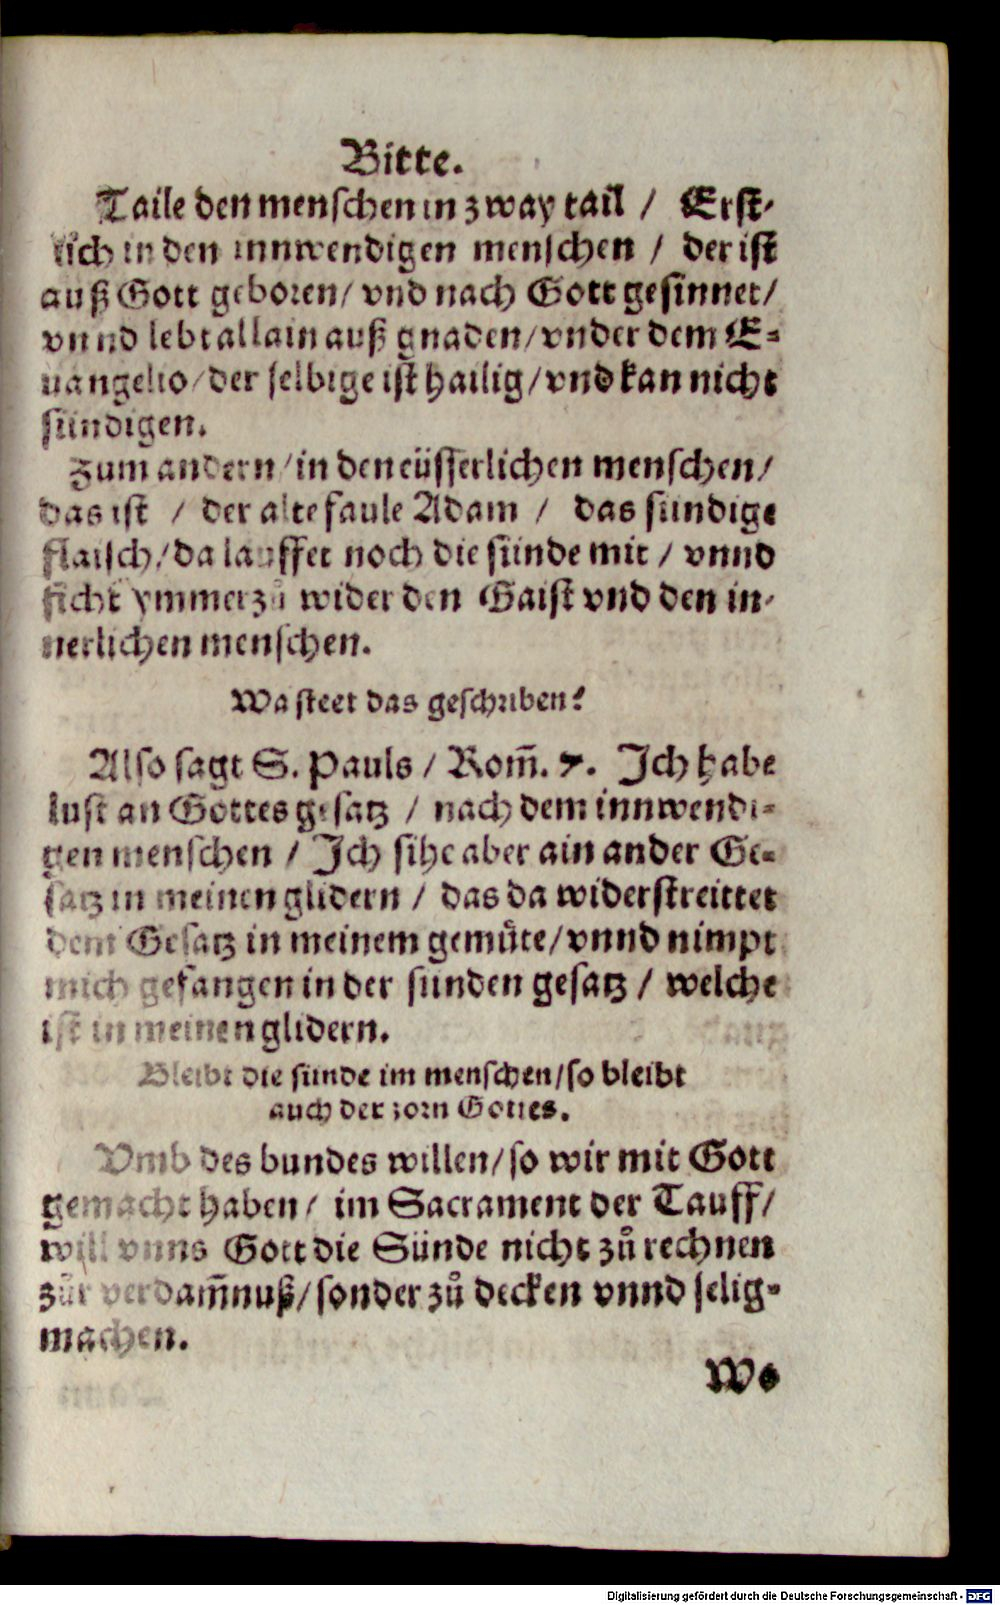 Bitte.
Taile den menschen in zway tail / Erst-
lich in den innwendigen menschen / der ist
auß Gott geboren / vnd nach Gott gesinnet /
vnnd lebt allain auß gnaden / vnder dem E-
uangelio / der selbige ist hailig / vnd kan nicht
sündigen.
Zum andern / in den eüsserlichen menschen /
das ist / der alte faule Adam / das sündige
flaisch / da lauffet noch die sünde mit / vnnd
ficht ymmerzů wider den Gaist vnd den in-
nerlichen menschen.
Wa steet das geschriben?
Also sagt S. Pauls / Rom̃. 7. Ich habe
lust an Gottes gesatz / nach dem innwendi-
gen menschen / Ich sihe aber ain ander Ge-
satz in meinen glidern / das da widerstreittet
dem Gesatz in meinem gemůte / vnnd nimpt
mich gefangen in der sunden gesatz / welche
ist in meinen glidern.
Bleibt die sünde im menschen / so bleibt
auch der zorn Gottes.
Vmb des bundes willen / so wir mit Gott
gemacht haben / im Sacrament der Tauff /
will vnns Gott die Sünde nicht zů rechnen
zůr verdam̃nuß / sonder zů decken vnnd selig-
machen.
Wo
Digitalisierung gefördert durch die Deutsche Forschungsgemeinschaft - DFG